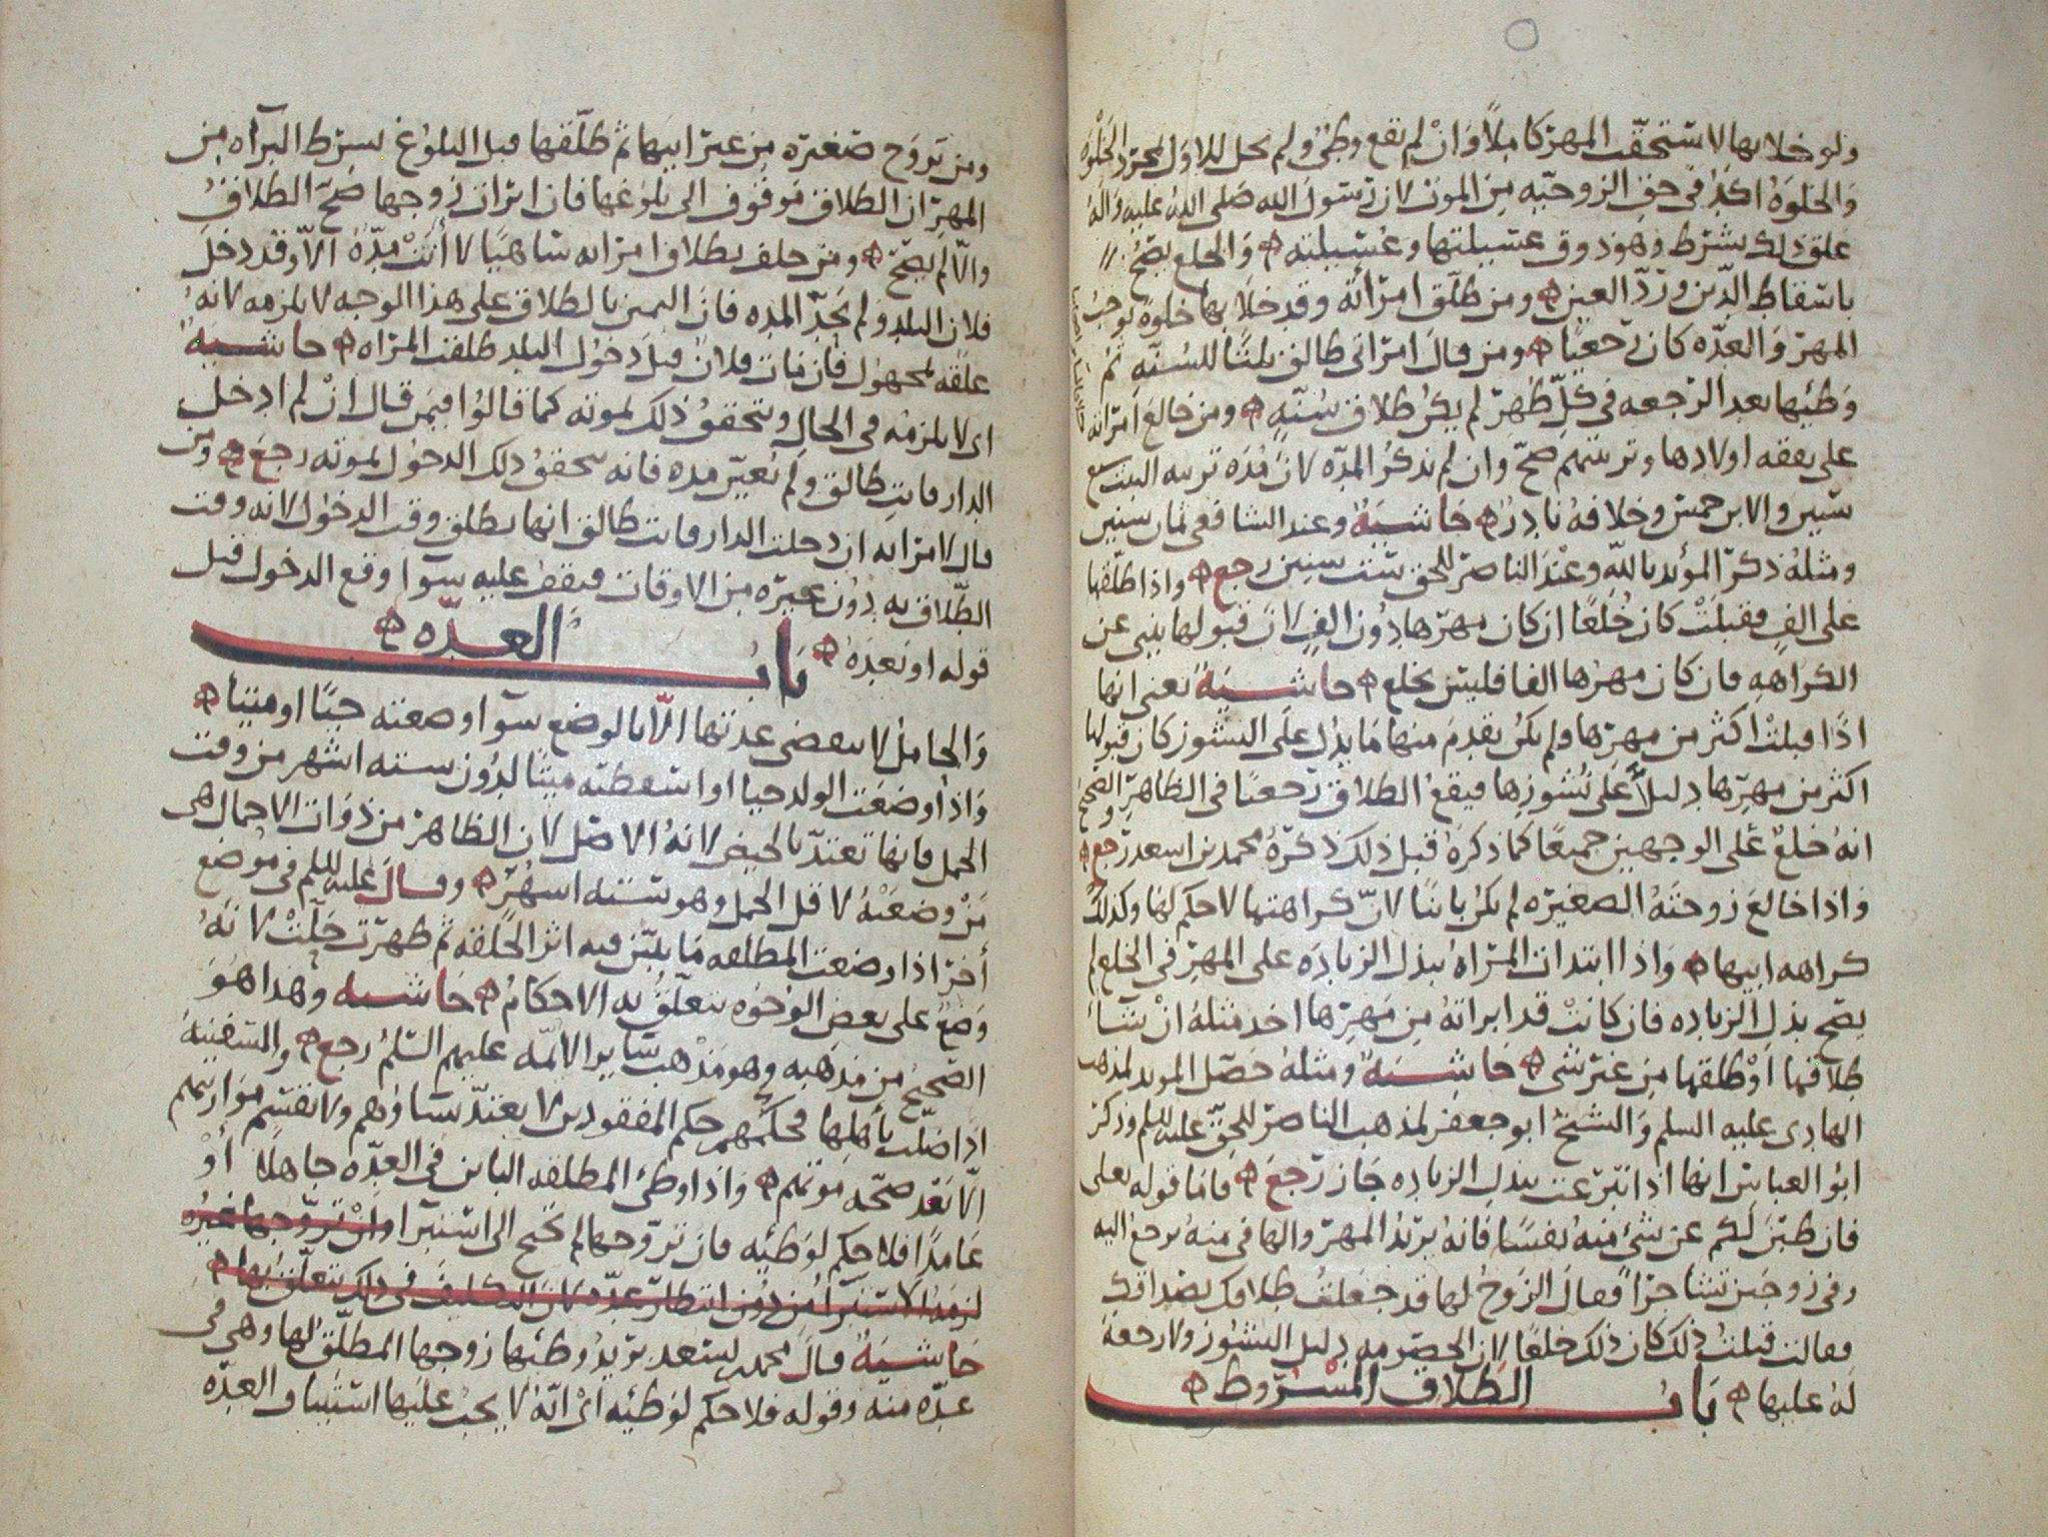 ولو خلا بها لاستحقت المهر كاملاً وان لم يقع وطئ ولم تحل للاول بمجرد الخلوة
والخلوة اكد في حق الزوجيه من الموت لان رسول الله صلى الله عليه وآله
علق ذلك بشرط وهو ذوق عسيلتها وعسيلته والخلع يصح
باسقاط الدين ورد العين ومن طلق امرأته وقد خلا بها خلوة توجب
المهر والعده كان رجعيًا ومن قال امراتي طالق ثلثا للسنه ثم
وطئها بعد الرجعه في كل طهر لم يكن طلاق سنة ومن خالع امراته
على نفقه اولادها وتربيتهم صح وان لم تذكر المدة لان مدة تربيه البنت سبع
سنين والابن خمس وخلافه نادر حاشية وعند الشافعي ثمان سنين
ومثله ذكر المؤيد بالله وعند الناصر للحق ست سنين رجع واذا طلقها
على الف فقبلت كان خلعًا ان كان مهرها دون الف لان قبولها ينبي عن
الكراهه فان كان مهرها الفا فليس بخلع حاشية يعني انها
اذا قبلت اكثر من مهرها ولم يكن تقدم منها ما يدل على النشوز كان قبولها
اكثر من مهرها دليلاً على نشوزها فيقع الطلاق رجعيا في الظاهر والصحيح
انه خلع على الوجهين جميعًا كما ذكره قبل ذلك ذكره محمد بن اسعد رجع
واذا خالع زوجته الصغيره لم يكن باينًا لان كراهتها لا حكم لها وكذلك
كراهه ابيها واذا ابتدات المراة ببذل الزياده على المهر في الخلع لم
يصح بذل الزياده فان كانت قد ابراته من مهرها اخذ مثله ان شاء
طلاقها او طلقها من غير شي حاشية ومثله حصل المويد لمذهب
الهادي عليه السلم والشيخ ابو جعفر لمذهب الناصر للحق عليه السلم وذكر
ابو العباس انها اذا تبرعت ببذل الزياده جاز رجع فاما قوله تعلى
فان طبن لكم عن شي منه نفسًا فانه يريد المهر والها في منه يرجع اليه
وفي زوجين تشاجرا فقال الزوج لها قد جعلت طلاقك بصداقك
فقالت قبلت ذلك كان ذلك خلعًا لان دليل النشوز ولا رجعة
له عليها باب الطلاق المشروط
ومن تزوج صغيره من غير ابيها ثم طلقها قبل البلوغ بشرط البرآه من
المهر ان الطلاق موقوف الى بلوغها فان ابرات زوجها صح الطلاق
والا لم يصح ومن حلف بطلاق امراته لا أتت مدة الا وقد دخل
فلان البلد ولم يحد المده فان اليمين بالطلاق على هذا الوجه لا يلزمه لانه
علقه بمجهول فان مات فلان قبل دخول البلد طلقت المراه حاشية
اي لا يلزمه في الحال ويتحقق ذلك بموته كما قالوا فيمن قال ان لم ادخل
الدار فانت طالق ولم يعين مده فانه يتحقق ذلك الدخول بموته رجع ومن
قال لامراته ان دخلت الدار فانت طالق انها تطلق وقت الدخول لانه وقت
الطلاق به دون غيره من الاوقات فيقف عليه سوآ وقع الدخول قبل
قوله او بعده باب العدة
والحامل لا تنقضي عدتها الا بالوضع سوآ وضعته حيًا او ميتًا
واذا وضعت الولد حيا او اسقطته ميتًا لدون سته اشهر من وقت
الحمل فانها تعتد بالحيض لانه الاصل لان الظاهر من ذوات الاحمال هي
من وضعته لاقل الحمل وهو ستة اشهر وقال عليه السلم في موضع
آخر اذا وضعت المطلقه ما يتبين فيه اثر الخلقه ثم طهرت حلت لانه
وضع على بعض الوجوه تتعلق به الاحكام حاشيه وهذا هو
الصحيح من مذهبه وهو مذهب ساير الايمه عليهم السلم رجع والسفينة
اذا ضلت بأهلها فحكمهم حكم المفقودين لا يعتد نساؤهم ولا تقسم مواريثهم
الا بعد صحه موتهم واذا وطئ المطلقه البائن في العدة جاهلا أو
عامدًا فلا حكم لوطئه فان تزوجها لم تحتج الى استبرا وان تزوجها غيره
لزمها الاستبرا من دون انتظار عدة لان التكليف في ذلك يتعلق بها
حاشية قال محمد بن اسعد يريد وطئها زوجها المطلق لها وهي في
عدة منه وقوله فلا حكم لوطئه اي انه لا يجب عليها استيناف العدة